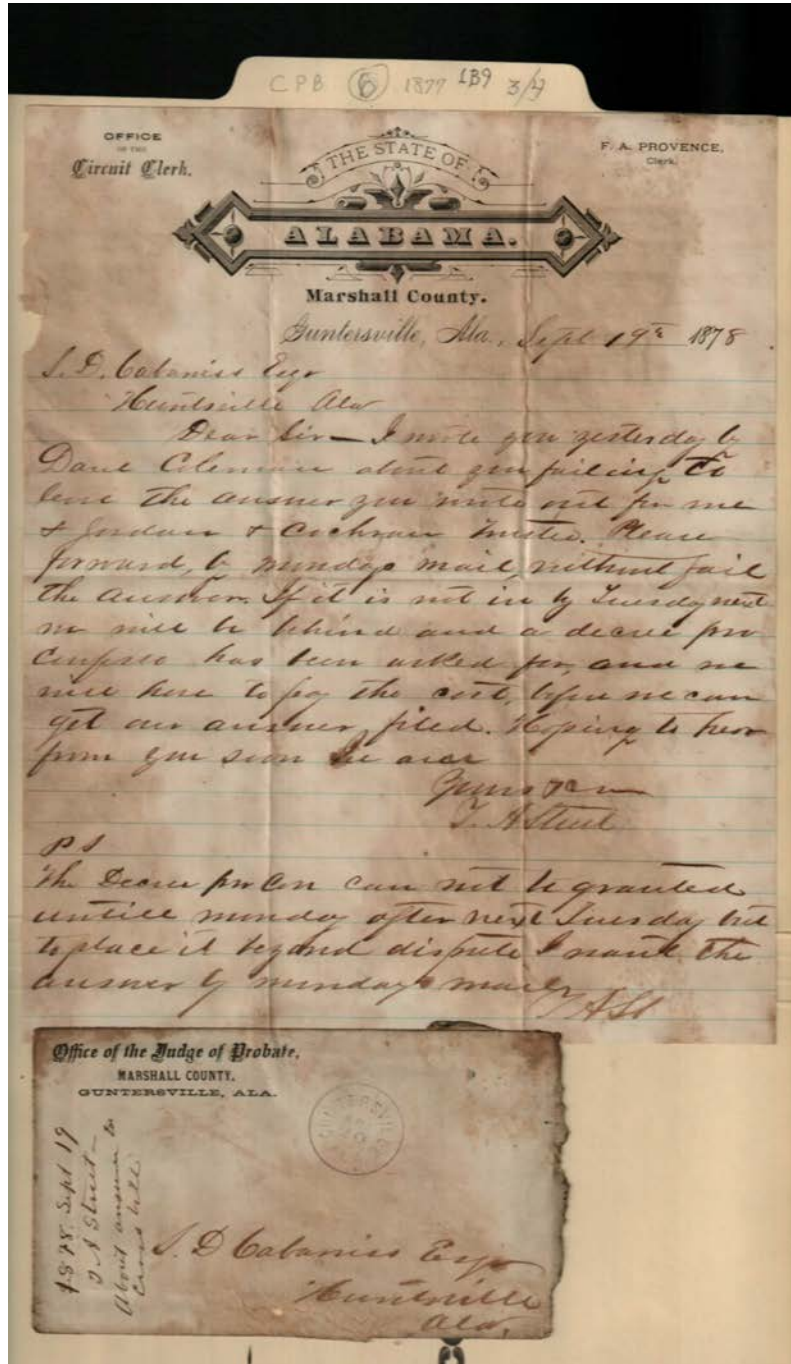 CPB 6 1877 1B9 3/4
OFFICE
OF THE
Circuit Clerk.
THE STATE OF
ALABAMA.
F. A. PROVENCE,
Clerk.
Marshall County.
Guntersville, Ala., Sept 19th 1878
S. D. Cabaniss Esqr
Huntsville Ala
Dear Sir — I wrote you yesterday by
Dave Coleman about you failing to
leave the answer you wrote out for me
& Jordan & Cochran Trustee. Please
forward, by mondays mail, without fail
the answer. If it is not in by Tuesday next
we will be behind and a decree pro
confesso has been asked for, and we
will have to pay the cost, before we can
get our answer filed. Hoping to hear
from you soon
Yours &c
T. A Street
PS
The Decree pro Con can not be granted
untill monday after next Tuesday but
to place it beyond dispute I want the
answer by mondays mail
T A St
Office of the Judge of Probate,
MARSHALL COUNTY,
GUNTERSVILLE, ALA.
GUNTERSVILLE
1878. Sept 19
T A Street —
About answer to
cross bill
S. D Cabaniss Esqr
Huntsville
Ala.